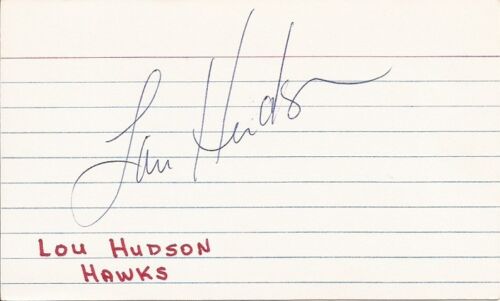 Lou Hudson
LOU HUDSON
HAWKS